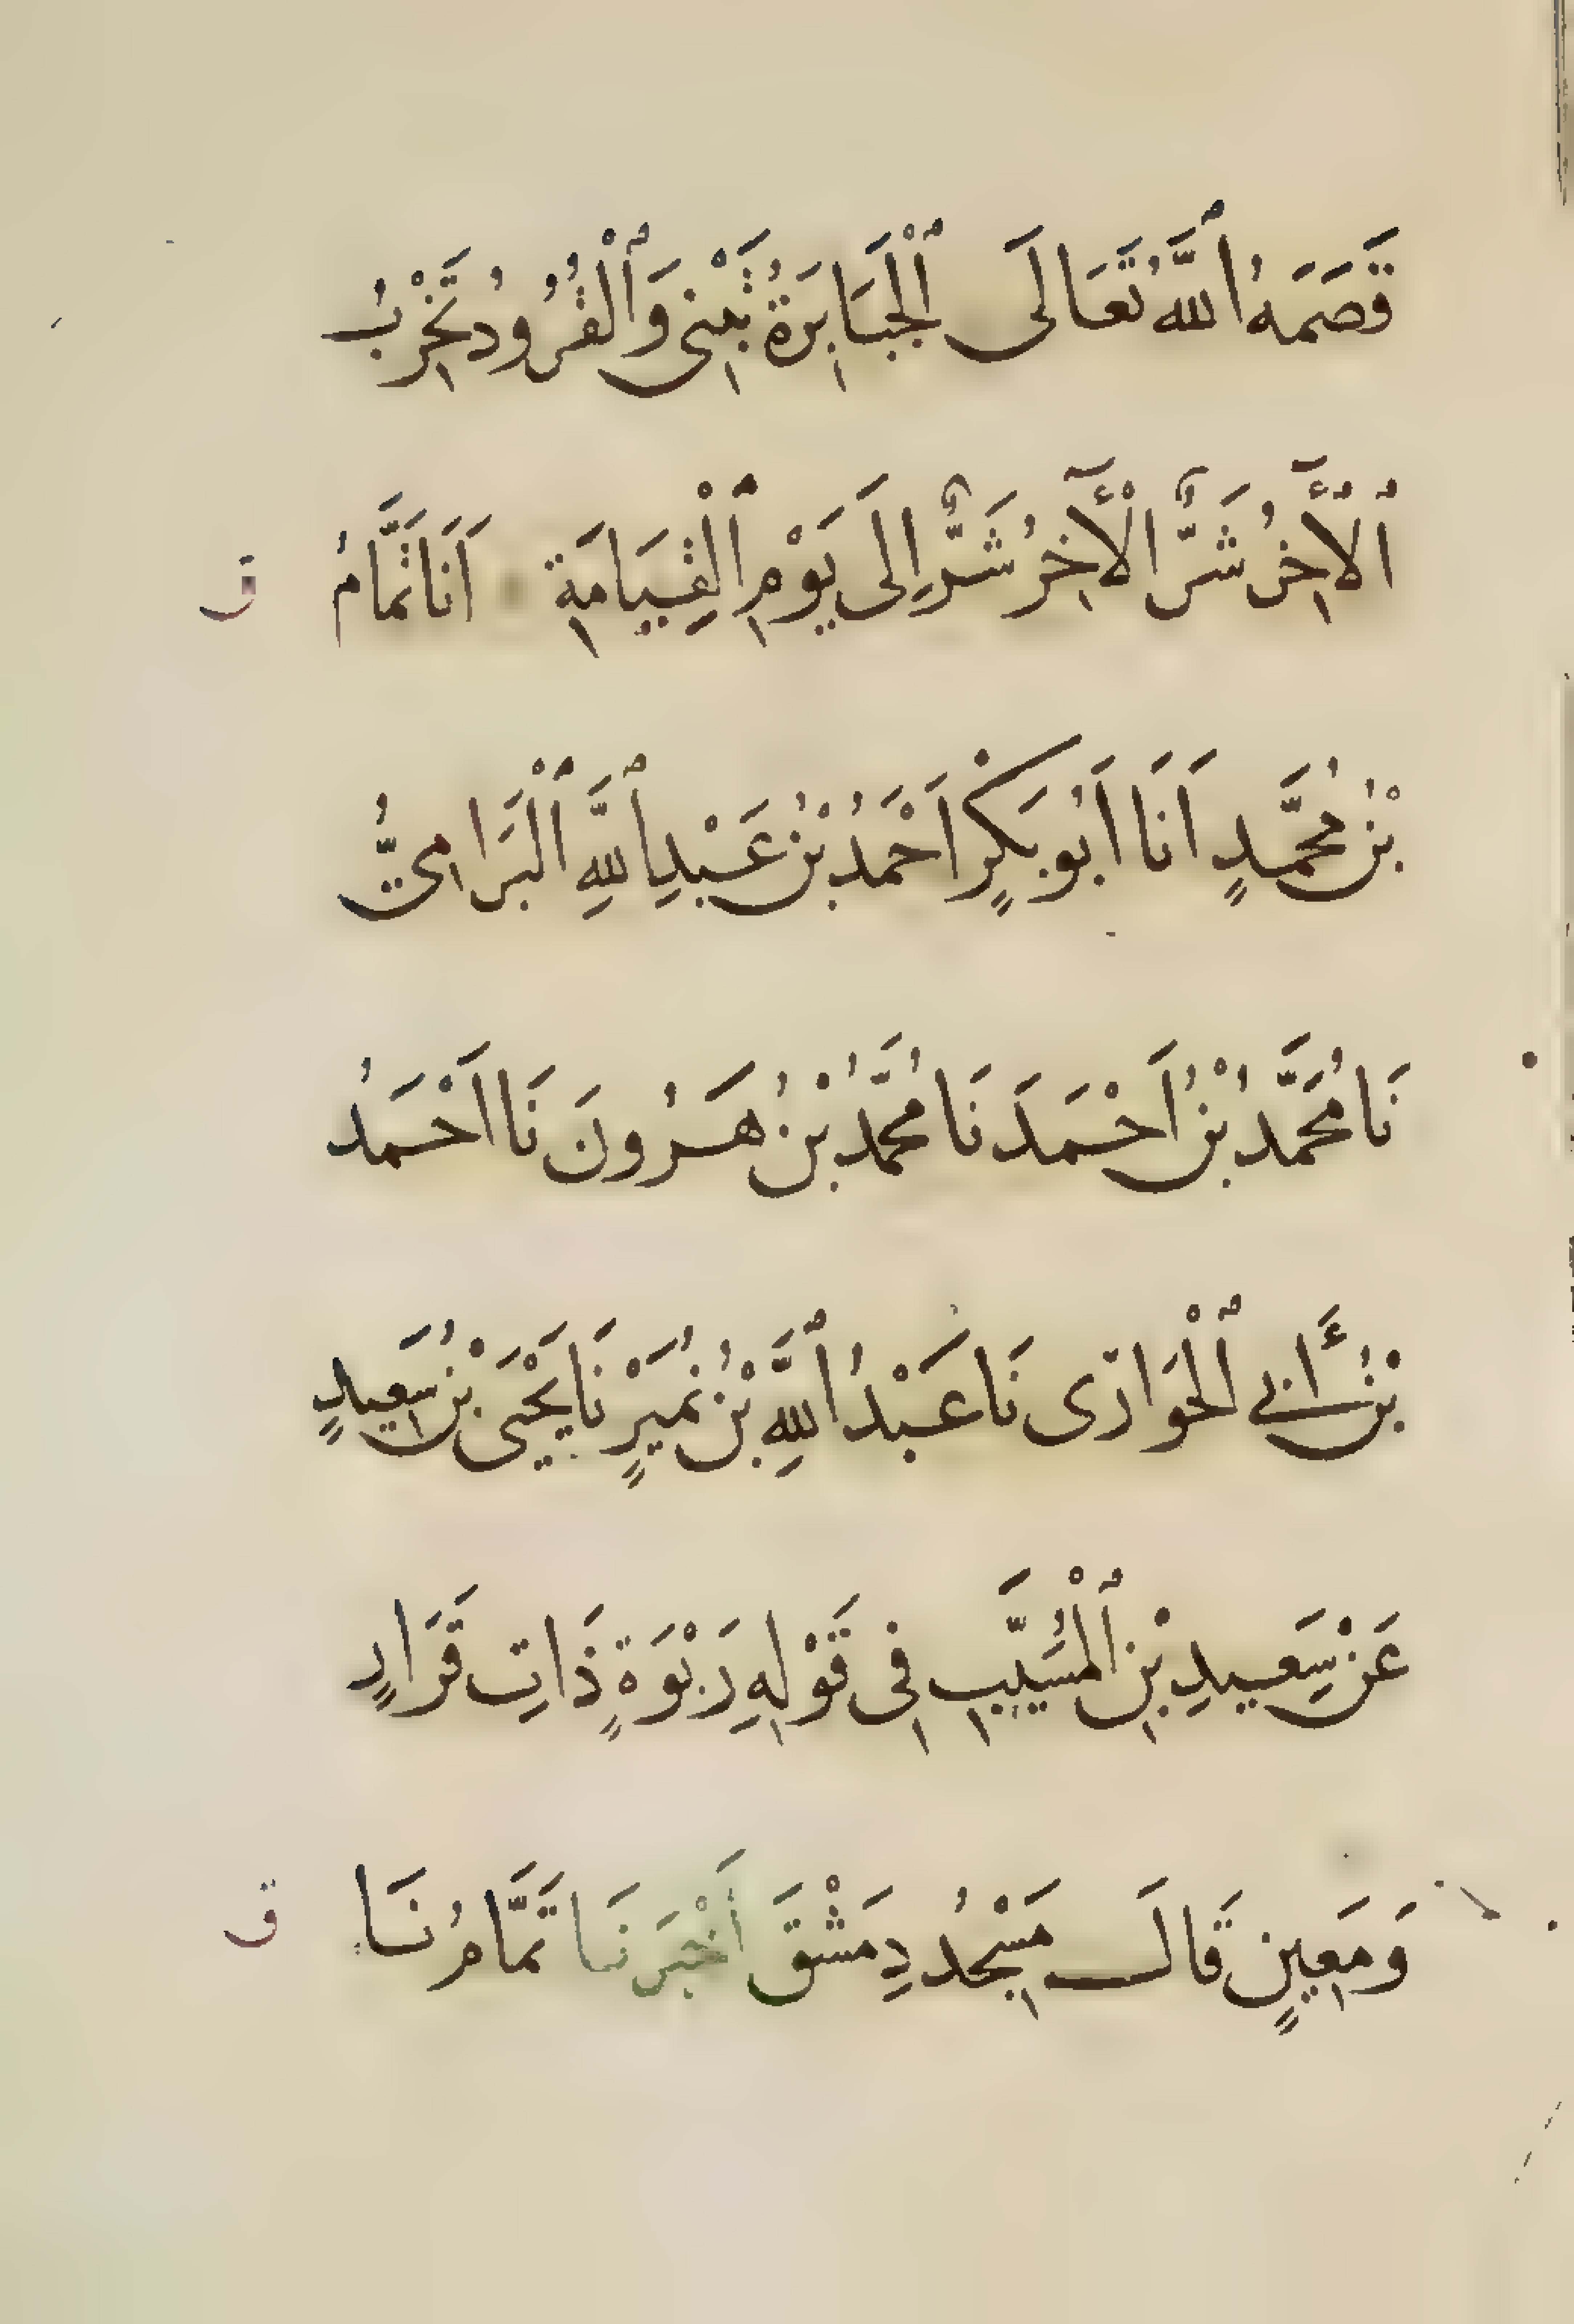 قَصَمَهُ ٱللَّهُ تَعَالَى ٱلْجَبَابِرَةُ تَبْنِى وَٱلْقُرُودُ تَخْرُبُ
ٱلْأٓخِرُ شَرٌّ ٱلْأٓخِرُ شَرٌّ إِلَى يَوْمِ ٱلْقِيَامَةِ اَنَا تَمَّامُ
ق
بْنُ مُحَمَّدٍ اَنَا اَبُو بَكْرٍ اَحْمَدُ بْنُ عَبْدِ ٱللَّهِ ٱلْبَرَامِىُّ
نَا مُحَمَّدُ بْنُ اَحْمَدَ نَا مُحَمَّدُ بْنُ هَرُونَ نَا اَحْمَدُ
بْنُ أَبِي ٱلْحَوَارَى نَا عَبْدُ ٱللَّهِ بْنُ نُمَيْرٍ نَا يَحْيَى بْنُ سَعِيدٍ
عَنْ سَعِيدِ بْنِ ٱلْمُسَيَّبِ فِى قَوْلِهِ رَبْوَةٍ ذَاتِ قَرَارٍ
وَمَعِينٍ قَالَ مَسْجِدُ دِمَشْقَ أَخْبَرَنَا تَمَّامُ نَا
ق